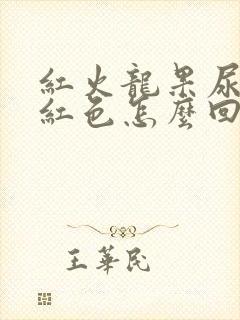 紅火龍果尿
紅色怎麼回
王華民